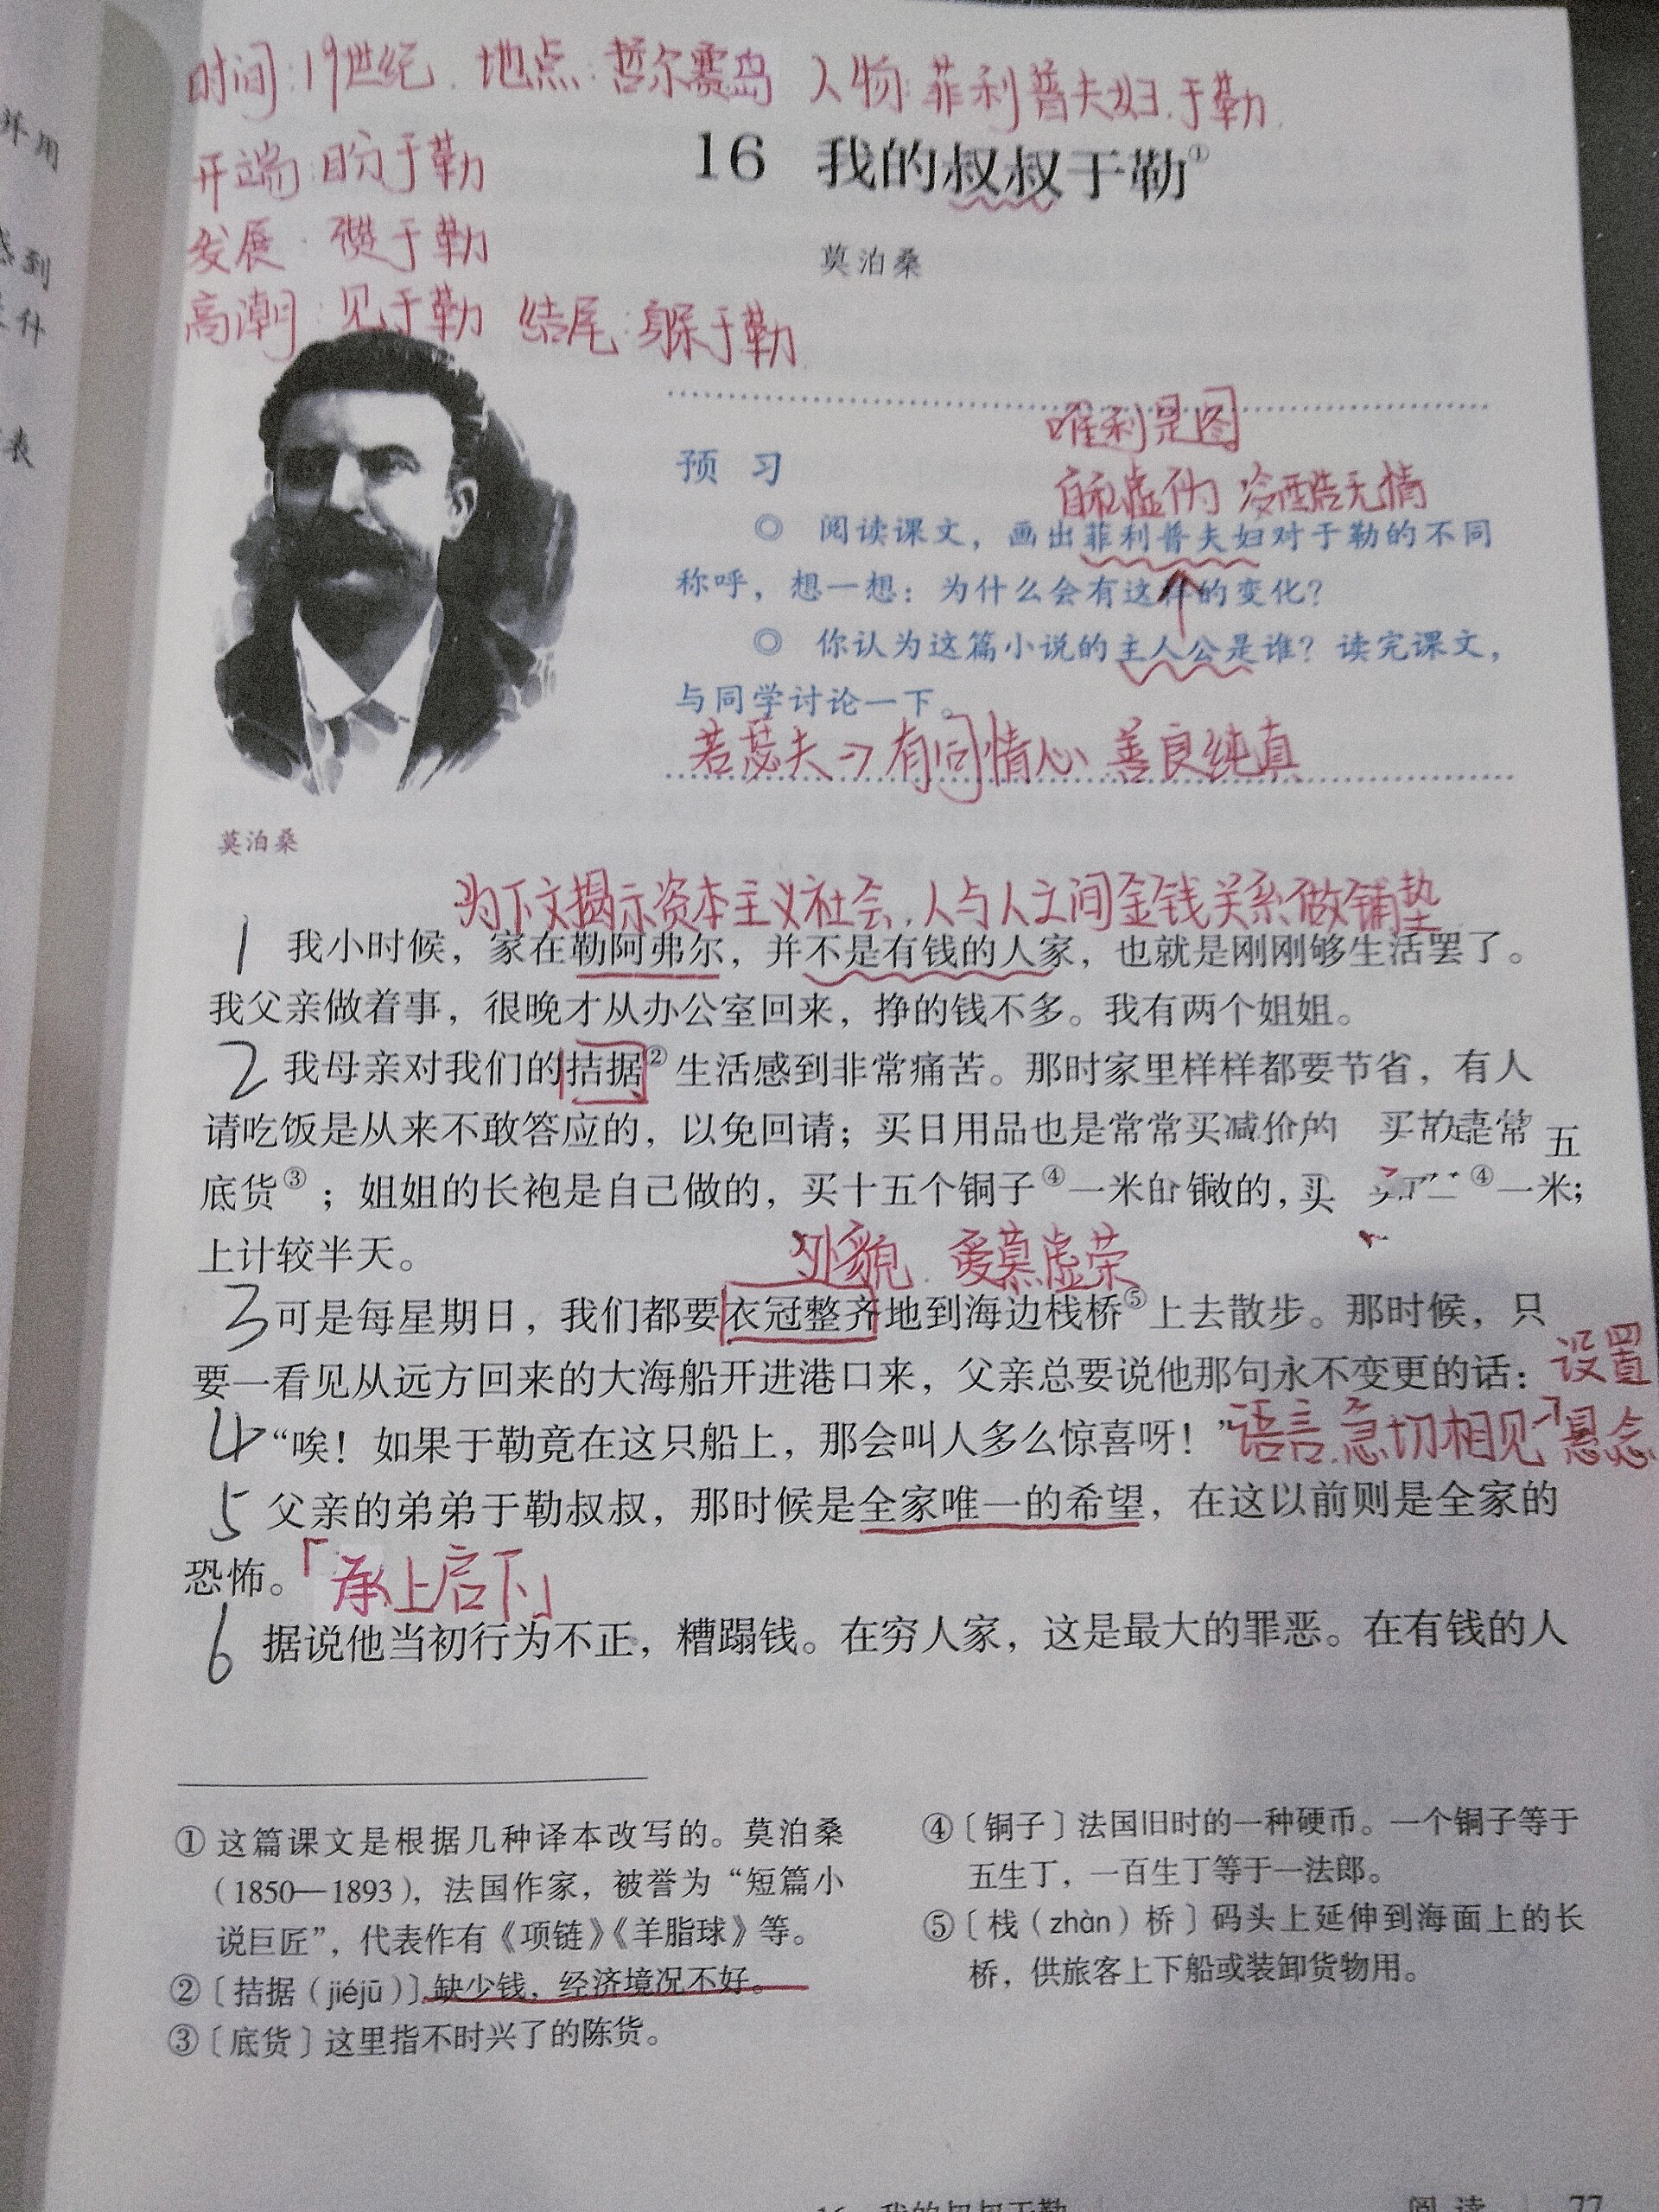 并用
感到
什
表
时间:19世纪.地点:哲尔赛岛 人物:菲利普夫妇.于勒.
开端:盼于勒
16 我的叔叔于勒①
发展:赞于勒
莫泊桑
高潮:见于勒 结尾:躲于勒.
唯利是图
预 习
自私虚伪 冷酷无情
◎ 阅读课文，画出菲利普夫妇对于勒的不同
称呼，想一想：为什么会有这样的变化？
◎ 你认为这篇小说的主人公是谁？读完课文，
与同学讨论一下。
若瑟夫→有同情心、善良纯真
莫泊桑
为下文揭示资本主义社会.人与人之间金钱关系做铺垫
1 我小时候，家在勒阿弗尔，并不是有钱的人家，也就是刚刚够生活罢了。
我父亲做着事，很晚才从办公室回来，挣的钱不多。我有两个姐姐。
2 我母亲对我们的拮据②生活感到非常痛苦。那时家里样样都要节省，有人
请吃饭是从来不敢答应的，以免回请；买日用品也是常常买减价的 买 常 五
底货③；姐姐的长袍是自己做的，买十五个铜子④一米 的，买 ④一米；
上计较半天。
外貌.爱慕虚荣
3 可是每星期日，我们都要衣冠整齐地到海边栈桥⑤上去散步。那时候，只
要一看见从远方回来的大海船开进港口来，父亲总要说他那句永不变更的话：
设置
4 “唉！如果于勒竟在这只船上，那会叫人多么惊喜呀！”语言.急切相见 悬念
5 父亲的弟弟于勒叔叔，那时候是全家唯一的希望，在这以前则是全家的
恐怖。「承上启下」
6 据说他当初行为不正，糟蹋钱。在穷人家，这是最大的罪恶。在有钱的人
① 这篇课文是根据几种译本改写的。莫泊桑
（1850—1893），法国作家，被誉为“短篇小
说巨匠”，代表作有《项链》《羊脂球》等。
②〔拮据（jiéjū）〕缺少钱，经济境况不好。
③〔底货〕这里指不时兴了的陈货。
④〔铜子〕法国旧时的一种硬币。一个铜子等于
五生丁，一百生丁等于一法郎。
⑤〔栈（zhàn）桥〕码头上延伸到海面上的长
桥，供旅客上下船或装卸货物用。
16 我的叔叔于勒 阅 读 77